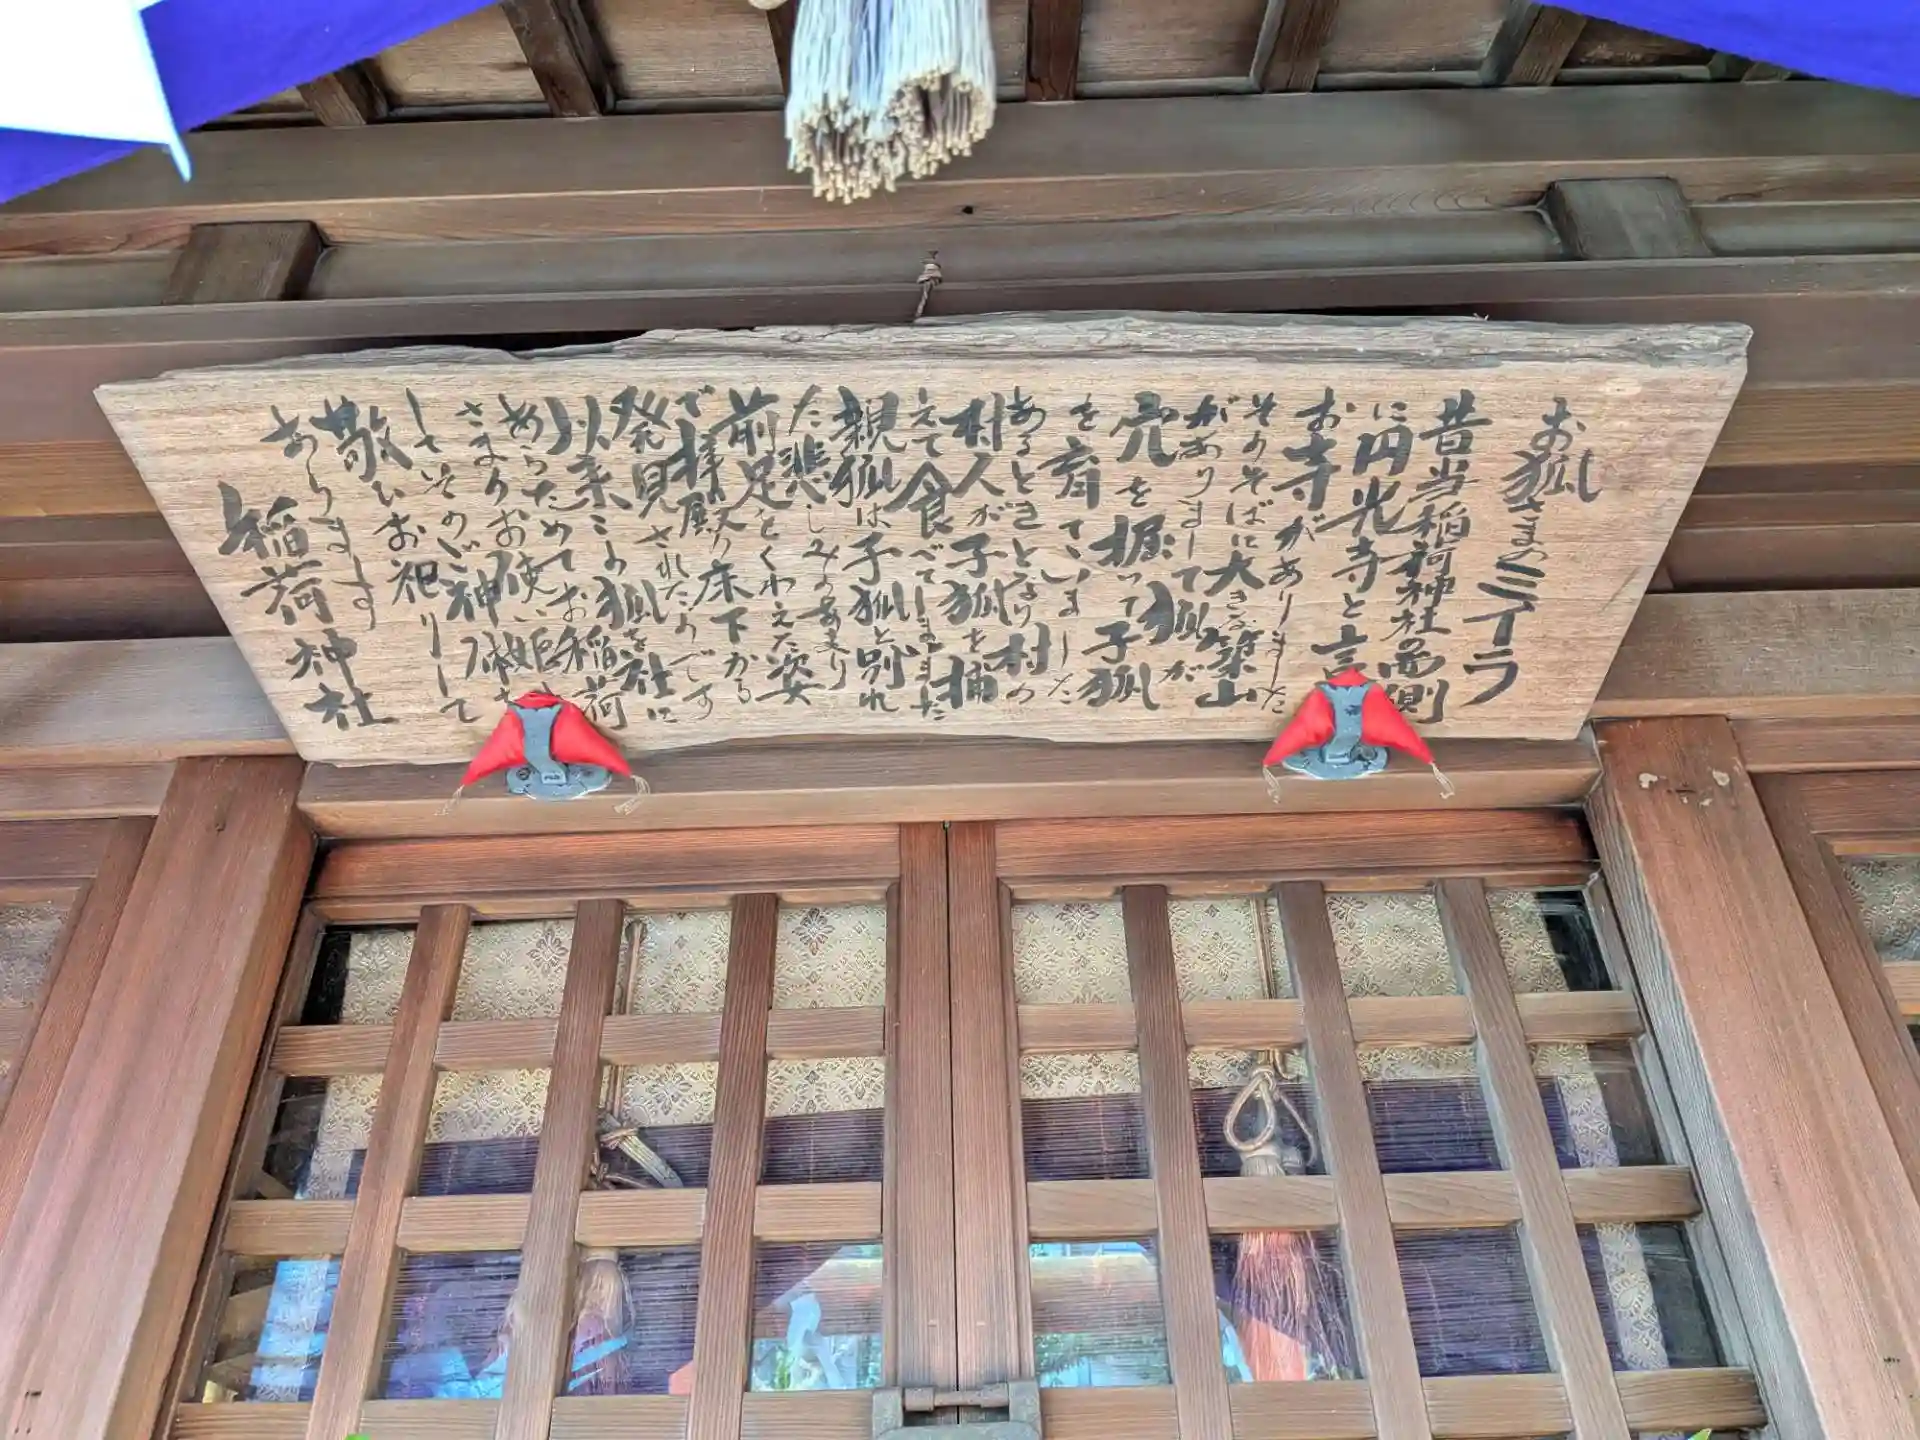 お狐さまのミイラ
昔当稲荷神社西側
に円光寺と言
お寺がありました
そのそばに大きな築山
がありまして狐が
穴を掘って子狐
を育てていました
あるときとなり村の
村人が子狐を捕
えて食べてしまいました
親狐は子狐と別れ
た悲しみのあまり
前足をくわえた姿
で拝殿の床下から
発見されたのです
以来この狐を社に
あらためてお稲荷
さまのお使い姫さ
してそのご神
敬いお祀りして
あります
稲荷神社